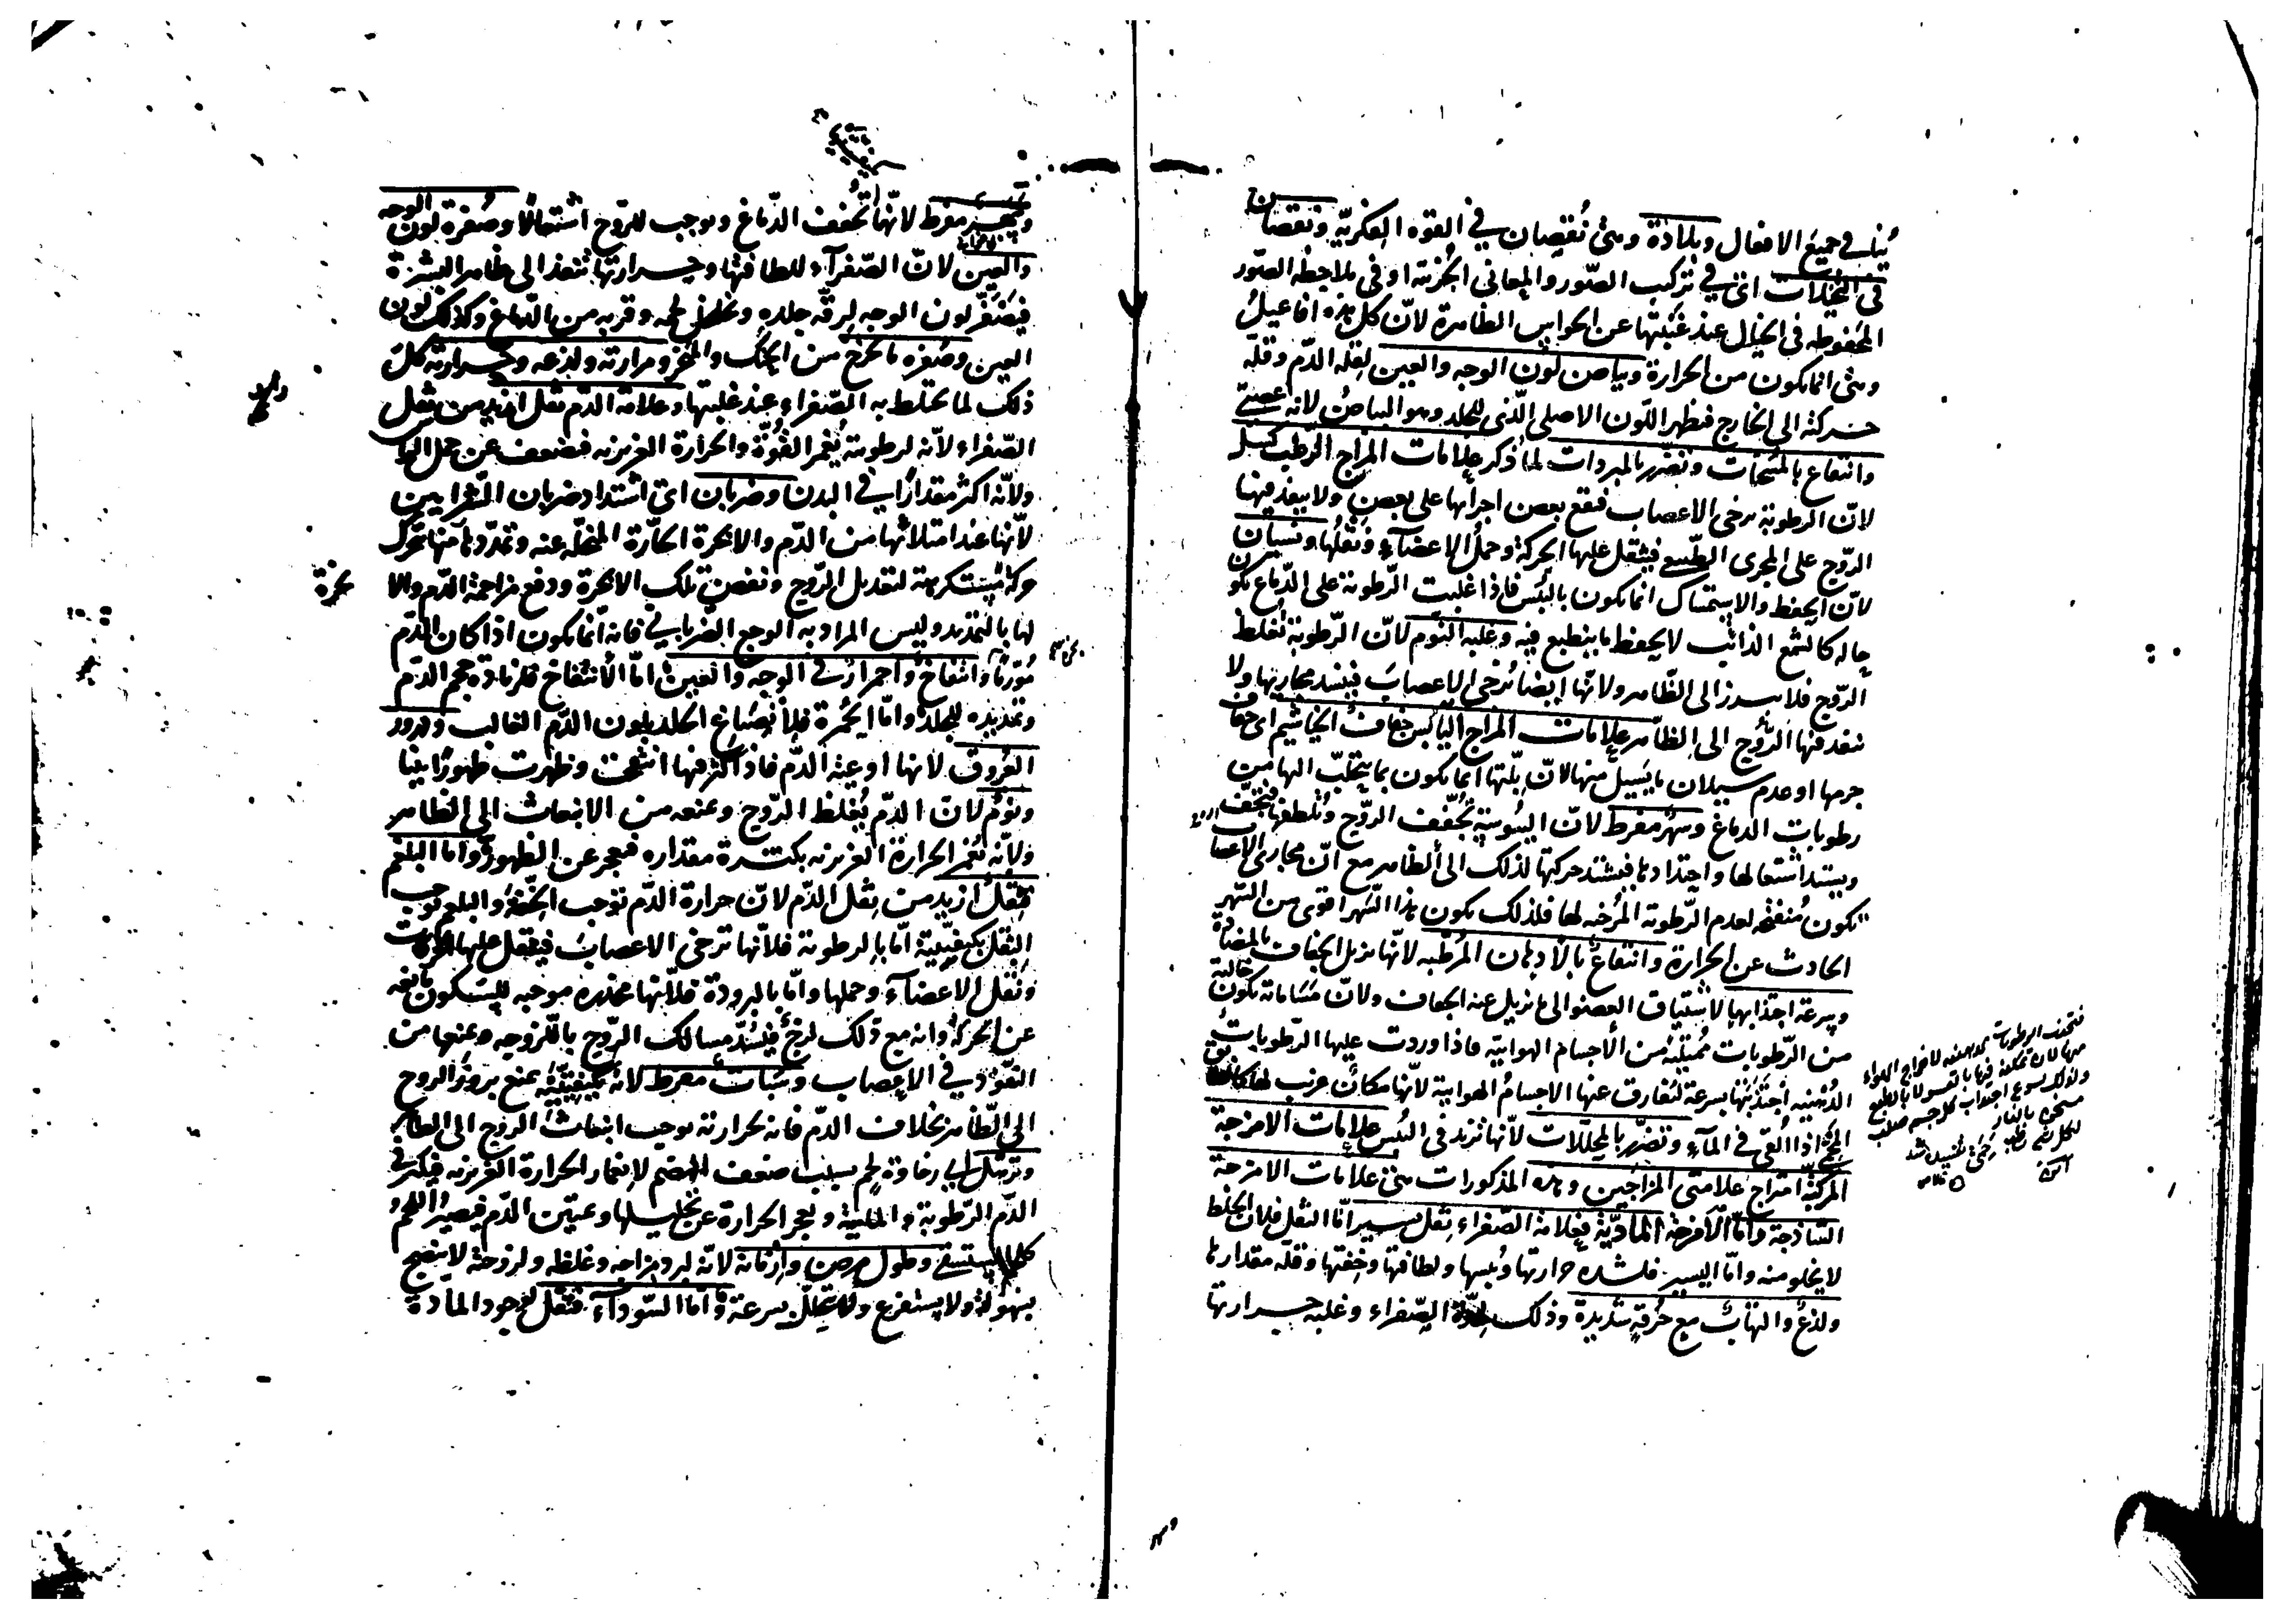 ينافي جميع الافعال وبلادة وهى نقصان في القوه الفكرية ونقصان
في التخيلات اى في تركيب الصور والمعانى الجزئية او في ملاحظة الصور
المحفوظه في الخيال عند غيبتها عن الحواس الظاهرة لانّ كل هذه افاعيل
وهى انما يكون من الحرارة وبياض لون الوجه والعين لقلة الدم وقلة
حركته الى الخارج فيظهر اللون الاصلى الذى للجلد وهو البياض لانه عصبى
وانتفاع بالمسخنات وتضرر بالمبردات لما ذكر علامات المزاج الرطب كسل
لانّ الرطوبة ترخى الاعصاب فيقع بعض اجزائها على بعض ولا ينفذ فيها
الروح على المجرى الطبيعى فيثقل عليها الحركة وحمل الاعضاء ونقلها ونسيان
لانّ الحفظ والاستمساك انما يكون باليبس فاذا غلبت الرطوبة على الدماغ يكون
حاله كالشمع الذائب لا يحفظ ما ينطبع فيه وغلبة النوم لانّ الرطوبة تغلظ
الروح فلا يبرز الى الظاهر ولانها ايضا ترخى الاعصاب فينسد مجاريها ولا
ينفذ فيها الروح الى الظاهر علامات المزاج اليابس جفاف الخياشيم اى جفاف
جرمها او عدم سيلان ما يسيل منها لانّ بلّتها انما يكون بما يتحلب اليها من
رطوبات الدماغ وسهر مفرط لانّ اليبوسة تجفف الروح وتلطفها فيخف
ويشتد اشتعالها واحتدادها فيشتد حركتها لذلك الى الظاهر مع انّ مجارى الاعصاب
تكون منفتحه لعدم الرطوبة المرخيه لها فلذلك يكون هذا السهر اقوى من السهر
الحادث عن الحرارة وانتفاع بالادهان المرطبه لانها تزيل الجفاف بالمضادة
وسرعة اجتذابها لاشتياق العضو الى ما يزيل عنه الجفاف ولانّ مساماته تكون خالية
من الرطوبات ممتلئة من الاجسام الهوائية فاذا وردت عليها الرطوبات
الدهنيه اجتذبتها بسرعة لتفارق عنها الاجسام الهوائية لانها مكان غريب لها
اذا القى في الماء وتضرر بالمحللات لانها تزيد في اليبس علامات الامزجة
المركبة امتزاج علامتى المزاجين وهذه المذكورات هى علامات الامزجة
الساذجة وامّا الامزجة المادية فعلامة الصفراء ثقل يسير امّا الثقل فلانّ الخلط
لا يخلو منه وامّا اليسير فلشدة حرارتها ويبسها ولطافتها وخفتها وقلة مقدارها
ولذع والتهاب مع حرقة شديدة وذلك لحدة الصفراء وغلبة حرارتها
وسهر مفرط لانها تجفف الدماغ وتوجب للروح اشتعالا وصفرة لون الوجه
والعين لانّ الصفراء للطافتها وحرارتها تنفذ الى ظاهر البشرة
فيصفر لون الوجه لرقة جلده وتخلخل لحمه وقربه من الدماغ وكذلك لون
العين وصفرة ما يخرج من الحنك والمنخر ومرارته ولذعه وحرارته كل
ذلك لما يختلط به الصفراء عند غلبتها وعلامة الدم ثقل ازيد من ثقل
الصفراء لانه لرطوبته يغمر القوة والحرارة الغريزيه فيضعف عن حمل الراس
ولانه اكثر مقدارا في البدن وضربان اى اشتداد ضربان الشرايين
لانها عند امتلائها من الدم والابخرة الحارة المتحللة عنه وتمددها منها تتحرك
حركة مستكرهة لتعديل الروح ونفض تلك الابخرة ودفع مزاحمة الدم والابخرة
لها بالتمديد وليس المراد به الوجع الضربانى فانه انما يكون اذا كان الدم
مورّما وانتفاخ واحمرار في الوجه والعين امّا الانتفاخ فلزيادة حجم الدم
وتمديده للجلد وامّا الحمرة فلانصباغ الجلد بلون الدم الغالب ودرور
العروق لانها اوعية الدم فاذا كثر فيها انتفخت وظهرت ظهورا بينا
ونوم لانّ الدم يغلظ الروح ويمنعه من الانبعاث الى الظاهر
ولانه يغمر الحرارة الغريزيه بكثرة مقداره فيعجز عن الظهور وامّا البلغم
فثقل ازيد من ثقل الدم لانّ حرارة الدم توجب الخفة والبلغم يوجب
الثقل بكيفيتيه امّا بالرطوبة فلانها ترخى الاعصاب فيثقل عليها
ونقل الاعضاء وحملها وامّا بالبرودة فلانها مخدرة موجبه للسكون مانعه
عن الحركة وانه مع ذلك لزج فيسد مسالك الروح باللزوجه ويمنعها من
النفوذ في الاعصاب وسبات مفرط لانه بكيفيتيه يمنع بروز الروح
الى الظاهر بخلاف الدم فانه بحرارته يوجب انبعاث الروح الى الظاهر
وترهل اى رخاوة لحم بسبب ضعف الهضم لانغمار الحرارة الغريزيه فيكثر في
الدم الرطوبة والمائية ويعجز الحرارة عن تحليلها وعن تمتين الدم فيصير اللحم
كلحم المستسقى وطول مرض وازمانه لانه لبرد مزاجه وغلظه ولزوجته لا ينضج
بسهولة ولا يستفرغ ولا يتحلل بسرعة وامّا السوداء فثقل لوجود المادة